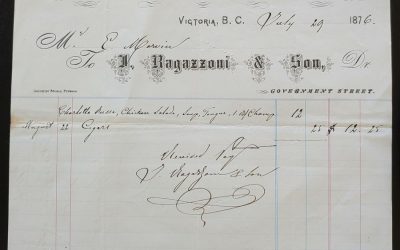 VICTORIA, B.C. July 29 1876.
Mr E. Marvin
To J. Ragazzoni & Son, Dr
GOVERNMENT STREET.
Charlotte Russe, Chicken Salad, Soup, Tongue, 1 Champ 12
August 22 Cigars 25 $ 12.25
Received Pay
J Ragazzoni & Son